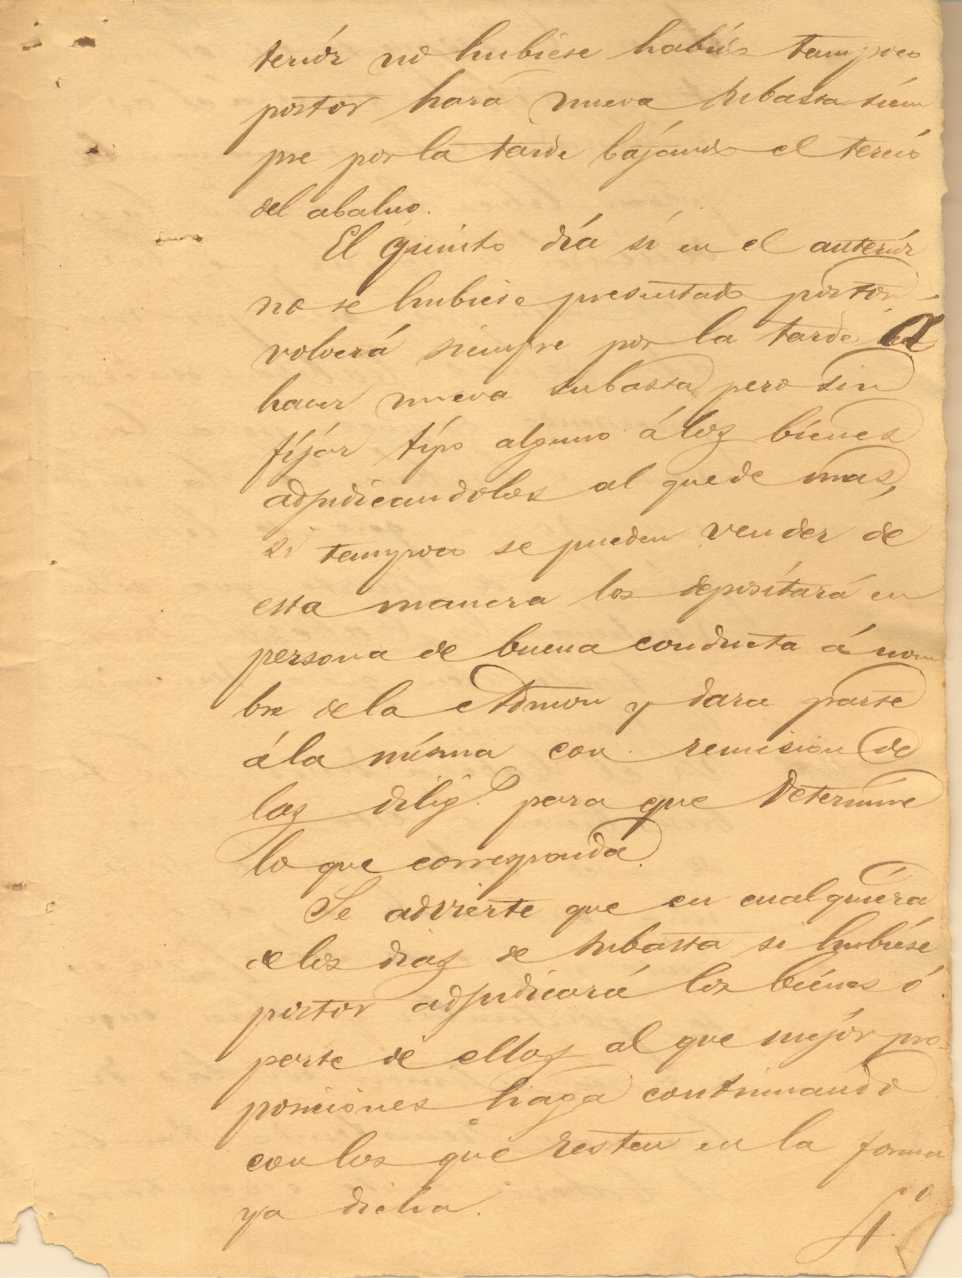 teriór no hubiése habido tampoco
postor hará nueva subasta siém
pre por la tarde bajando el tercio
del abaluo.
El quinto día si en el anteriór
no se hubiese presentado postor
volverá siempre por la tarde á
hacer nueva subasta pero sin
fíjár típo alguno á los bienes
adjudicandolos al que de mas,
si tampoco se pueden vender de
esta manera los depositará en
persona de buena conducta á nom
bre de la Admon y dara parte
á la misma con remision de
las dilig.s para que determine
lo que corresponda.
Se advierte que en cualquiera
de los dias de subasta si hubiése
postor adjudicará los biénes ó
parte de ellos al que mejór pro-
posiciones haga continuando
con los que resten en la forma
ya dicha.